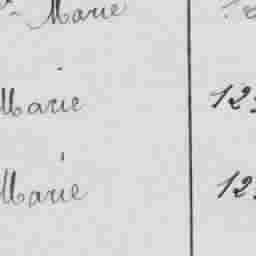 Marie
Marie 12
Marie 12